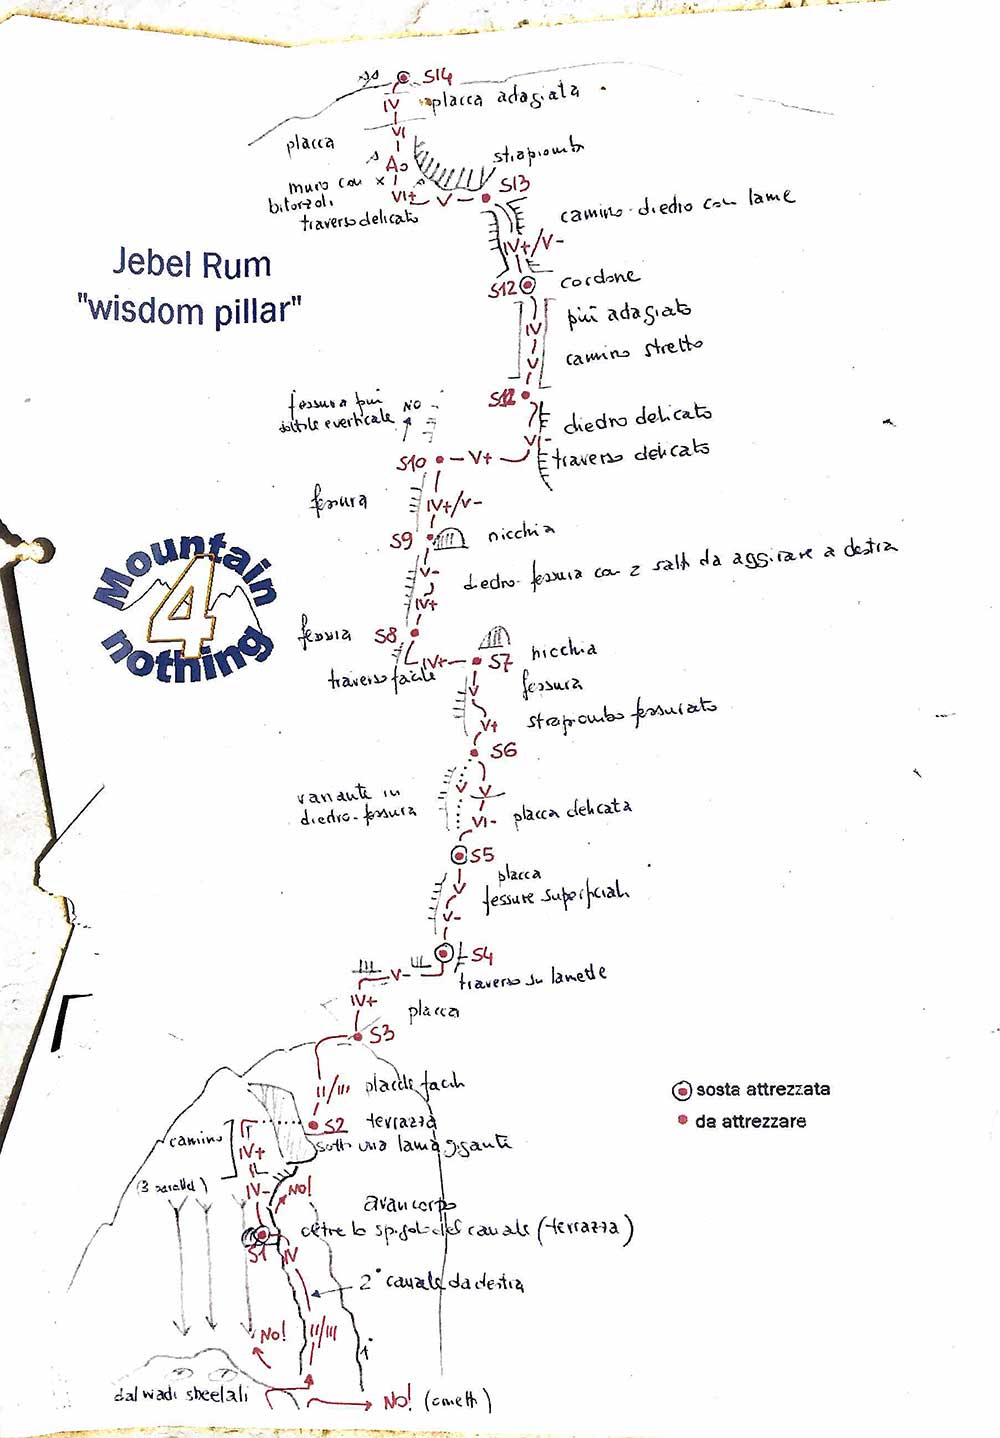 S14
IV placca adagiata
VI
placca
strapiombi
A0
muro con x
bitorzoli
VI+ V S13
traverso delicato
camino-diedro con lame
IV+/V-
Jebel Rum
"wisdom pillar"
S12 cordone
più adagiato
IV
camino stretto
V
S12
fessura più NO
sottile e verticale
diedro delicato
VI-
traverso delicato
S10 V+
fessura
IV+/V-
S9 nicchia
V-
diedro-fessura con 2 salti da aggirare a destra
IV+
Mountain
4
nothing
fessura S8
nicchia
IV+ S7
traverso facile
fessura
V
strapiombo fessurato
V+
S6
variante in
diedro-fessura
V V
placca delicata
VI-
S5
placca
V
fessure superficiali
V-
S4
V-
traverso su lamette
IV+
placca
S3
II/III placche facili
S2 terrazza
sotto una lama gigante
camino
IV+
(3 paralleli)
IV- NO!
avancorpo
oltre lo spigolo del canale (terrazza)
S1 IV
2° canale da destra
NO! II/III
1°
dal wadi sbeelali
NO! (ometti)
sosta attrezzata
da attrezzare